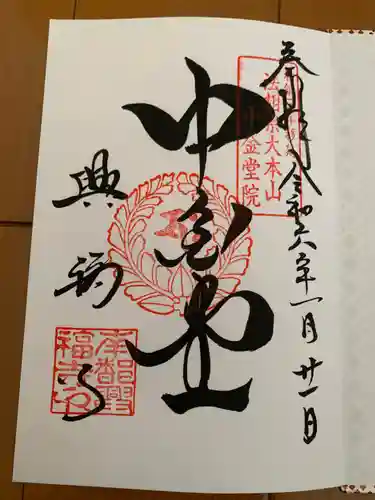 奉拝 令和六年一月廿一日
法相宗大本山
中金堂院
中金堂
興福寺